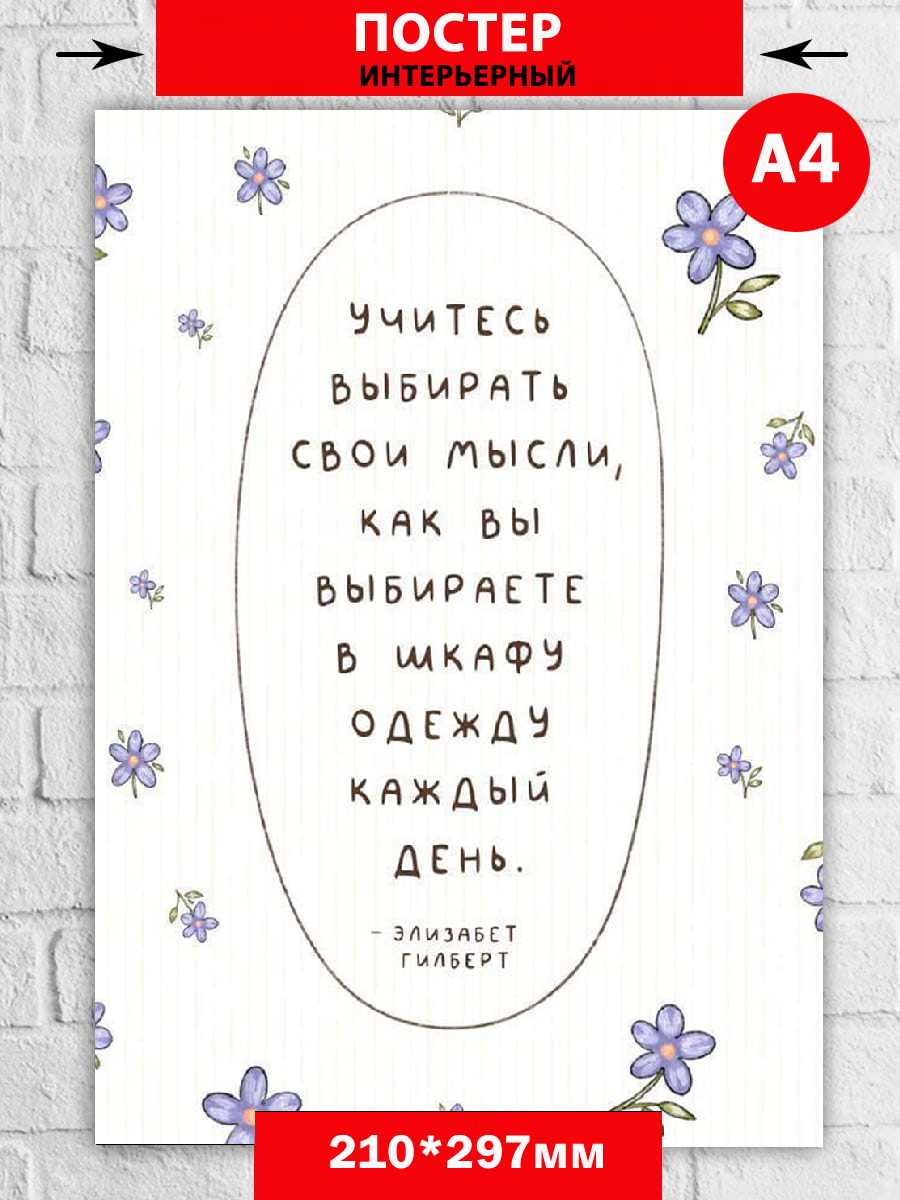 ПОСТЕР
ИНТЕРЬЕРНЫЙ
А4
УЧИТЕСЬ
ВЫБИРАТЬ
СВОИ МЫСЛИ,
КАК ВЫ
ВЫБИРАЕТЕ
В ШКАФУ
ОДЕЖДУ
КАЖДЫЙ
ДЕНЬ.
– ЭЛИЗАБЕТ
ГИЛБЕРТ
210*297мм